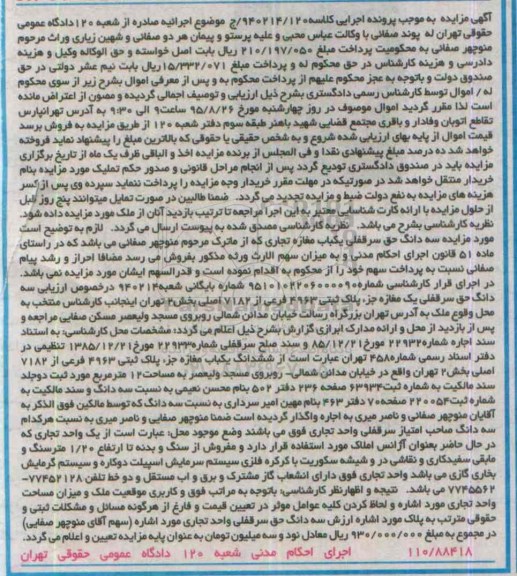 آگهی مزایده به موجب پرونده اجرایی کلاسه ۹۴۰۲۱۴/۱۲۰/ج موضوع اجرائیه صادره از شعبه ۱۲۰دادگاه عمومی
حقوقی تهران له پوند صفائی با وکالت عباس محبی و علیه پرستو و پیمان هر دو صفائی و شهین زیاری وراث مرحوم
منوچهر صفائی به محکومیت پرداخت مبلغ ۲۱۰/۱۹۷/۰۵۰ ریال بابت اصل خواسته و حق الوکاله وکیل و هزینه
دادرسی و هزینه کارشناس در حق محکوم له و پرداخت مبلغ ۱۵/۳۳۲/۰۷۱ریال بابت نیم عشر دولتی در حق
صندوق دولت و باتوجه به عجز محکوم علیهم از پرداخت محکوم به و پس از معرفی اموال بشرح زیر از سوی محکوم
له / اموال توسط کارشناس رسمی دادگستری بشرح ذیل ارزیابی و توصیف اجمالی گردیده و مصون از اعتراض مانده
است لذا مقرر گردید اموال موصوف در روز چهارشنبه مورخ ۹۵/۸/۲۶ ساعت۹ الی ۹:۳۰ به آدرس تهرانپارس
تقاطع اتوبان وفادار و باقری مجتمع قضایی شهید باهنر طبقه سوم دفتر شعبه ۱۲۰ از طریق مزایده به فروش برسد
قیمت اموال از پایه بهای ارزیابی شده شروع و به شخص حقیقی یا حقوقی که بالاترین مبلغ را پیشنهاد نماید فروخته
خواهد شد ده درصد مبلغ پیشنهادی نقدا و فی المجلس از برنده مزایده اخذ و الباقی ظرف یک ماه از تاریخ برگزاری
مزایده باید در صندوق دادگستری تودیع گردد پس از انجام مراحل قانونی و صدور حکم تملیک مورد مزایده بنام
خریدار منتقل خواهد شد در صورتیکه در مهلت مقرر خریدار وجه مزایده را پرداخت ننماید سپرده وی پس از کسر
هزینه های مزایده به نفع دولت ضبط و مزایده تجدید می گردد. ضمنا طالبین در صورت تمایل میتوانند پنج روز قبل
از حلول مزایده با ارائه کارت شناسایی معتبر به این اجرا مراجعه تا ترتیب بازدید آنان از ملک مورد مزایده داده شود.
نظریه کارشناسی بشرح می باشد. نظریه کارشناسی مصدق شده به پیوست ارسال می گردد. لازم به توضیح است
مورد مزایده سه دانگ حق سرقفلی یکباب مغازه تجاری که از ماترک مرحوم منوچهر صفائی می باشد که در راستای
ماده ۵۱ قانون اجرای احکام مدنی و به میزان سهم الارث ورثه مذکور بفروش می رسد مضافا احراز و رشد پیام
صفائی نسبت به پرداخت سهم خود را از محکوم به اقدام نموده است و قدرالسهم ایشان مورد مزایده نمی باشد.
در اجرای قرار کارشناسی شماره۹۵۱۰۱۰۲۲۰۶۰۰۰۰۹۰ شماره بایگانی شعبه۹۴۰۲۱۴ درخصوص ارزیابی سه
دانگ حق سرقفلی یک مغازه جز، پلاک ثبتی ۴۹۶۳ فرعی از ۷۱۸۲ اصلی بخش۲ تهران اینجانب کارشناس منتخب به
محل وقوع ملک به آدرس تهران بزرگراه رسالت خیابان مدائن شمالی روبروی مسجد ولیعصر مسکن صفایی مراجعه و
پس از بازدید از محل و ارائه مدارک ابرازی گزارش بشرح ذیل اعلام می گردد: مشخصات محل کارشناسی: به استناد
سند اجاره شماره۲۲۹۳۲ مورخ۸۵/۱۲/۲۱ و سند صلح سرقفلی شماره۲۲۹۳۳ مورخ۱۳۸۵/۱۲/۲۱ تنظیمی در
دفتر اسناد رسمی شماره۴۵۸ تهران عبارت است از ششدانگ یکباب مغازه جز، پلاک ثبتی ۴۹۶۳ فرعی از ۷۱۸۲
اصلی بخش۲ تهران واقع در خیابان مدائن شمالی- روبروی مسجد ولیعصر به مساحت۱۲ مترمربع مورد ثبت دوجلد
سند مالکیت به شماره ثبت۶۳۹۳۴ صفحه ۲۳۶ دفتر ۵۰۲ بنام محسن نعیمی به نسبت سه دانگ و سند مالکیت به
شماره ثبت۲۲۰۰۵۴ صفحه۷۰ دفتر ۴۶۳ بنام مهین امیر سرداری به نسبت سه دانگ که توسط مالکین فوق الذکر به
آقایان منوچهر صفائی و ناصر میری به اجاره واگذار گردیده است ضمنا منوچهر صفایی و ناصر میری به نسبت هرکدام
سه دانگ صاحب امتیاز سرقفلی واحد تجاری فوق می باشند وضع موجود محل: عبارت است از یک واحد تجاری که
در حال حاضر بعنوان آژانس املاک مورد استفاده قرار دارد و مفروش از سنگ و بدنه تا ارتفاع ۱/۲۰ مترسنگ و
مابقی سفیدکاری و نقاشی در و شیشه سکوریت با کرکره فلزی سیستم سرمایش اسپیلت دوکاره و سیستم گرمایش
بخاری گازی می باشد واحد تجاری فوق دارای انشعاب گاز مشترک و برق و اب مستقل و دو خط تلفن ۷۷۴۵۲۱۲۸-
۷۷۴۵۵۶۲ می باشد. نتیجه و اظهارنظر کارشناسی: باتوجه به مراتب فوق و کاربری موقعیت ملک و میزان مساحت
واحد تجاری مورد اشاره و لحاظ کردن کلیه عوامل موثر در تعیین قیمت و فارغ از هرگونه مسائل و مشکلات ثبتی و
حقوقی مترتب به پلاک مورد اشاره ارزش سه دانگ حق سرقفلی واحد تجاری مورد اشاره (سهم آقای منوچهر صفایی)
در مجموع به مبلغ ۹۳۰/۰۰۰/۰۰۰ ریال معادل نود و سه میلیون تومان به عنوان پایه مزایده تعیین و اعلام می گردد.
۱۱۰/۸۸۴۱۸ اجرای احکام مدنی شعبه ۱۲۰ دادگاه عمومی حقوقی تهران